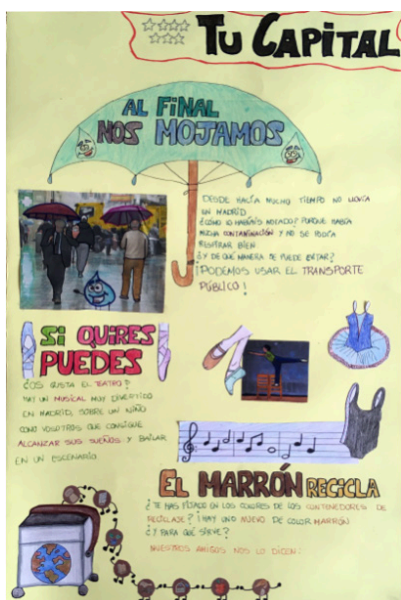 TU CAPITAL
AL FINAL
NOS MOJAMOS
DESDE HACÍA MUCHO TIEMPO NO LLOVÍA
EN MADRID.
¿CÓMO LO HABÉIS NOTADO? PORQUE HABÍA
MUCHA CONTAMINACIÓN Y NO SE PODÍA
RESPIRAR BIEN
¿Y DE QUÉ MANERA SE PUEDE EVITAR?
¡PODEMOS USAR EL TRANSPORTE
PÚBLICO!
SI QUIRES
PUEDES
¿OS GUSTA EL TEATRO?
HAY UN MUSICAL MUY DIVERTIDO
EN MADRID, SOBRE UN NIÑO
COMO VOSOTROS QUE CONSIGUE
ALCANZAR SUS SUEÑOS Y BAILAR
EN UN ESCENARIO
EL MARRÓN RECICLA
¿TE HAS FIJADO EN LOS COLORES DE LOS CONTENEDORES DE
RECICLAJE? ¡HAY UNO NUEVO DE COLOR MARRÓN
¿Y PARA QUÉ SIRVE?
NUESTROS AMIGOS NOS LO DICEN: